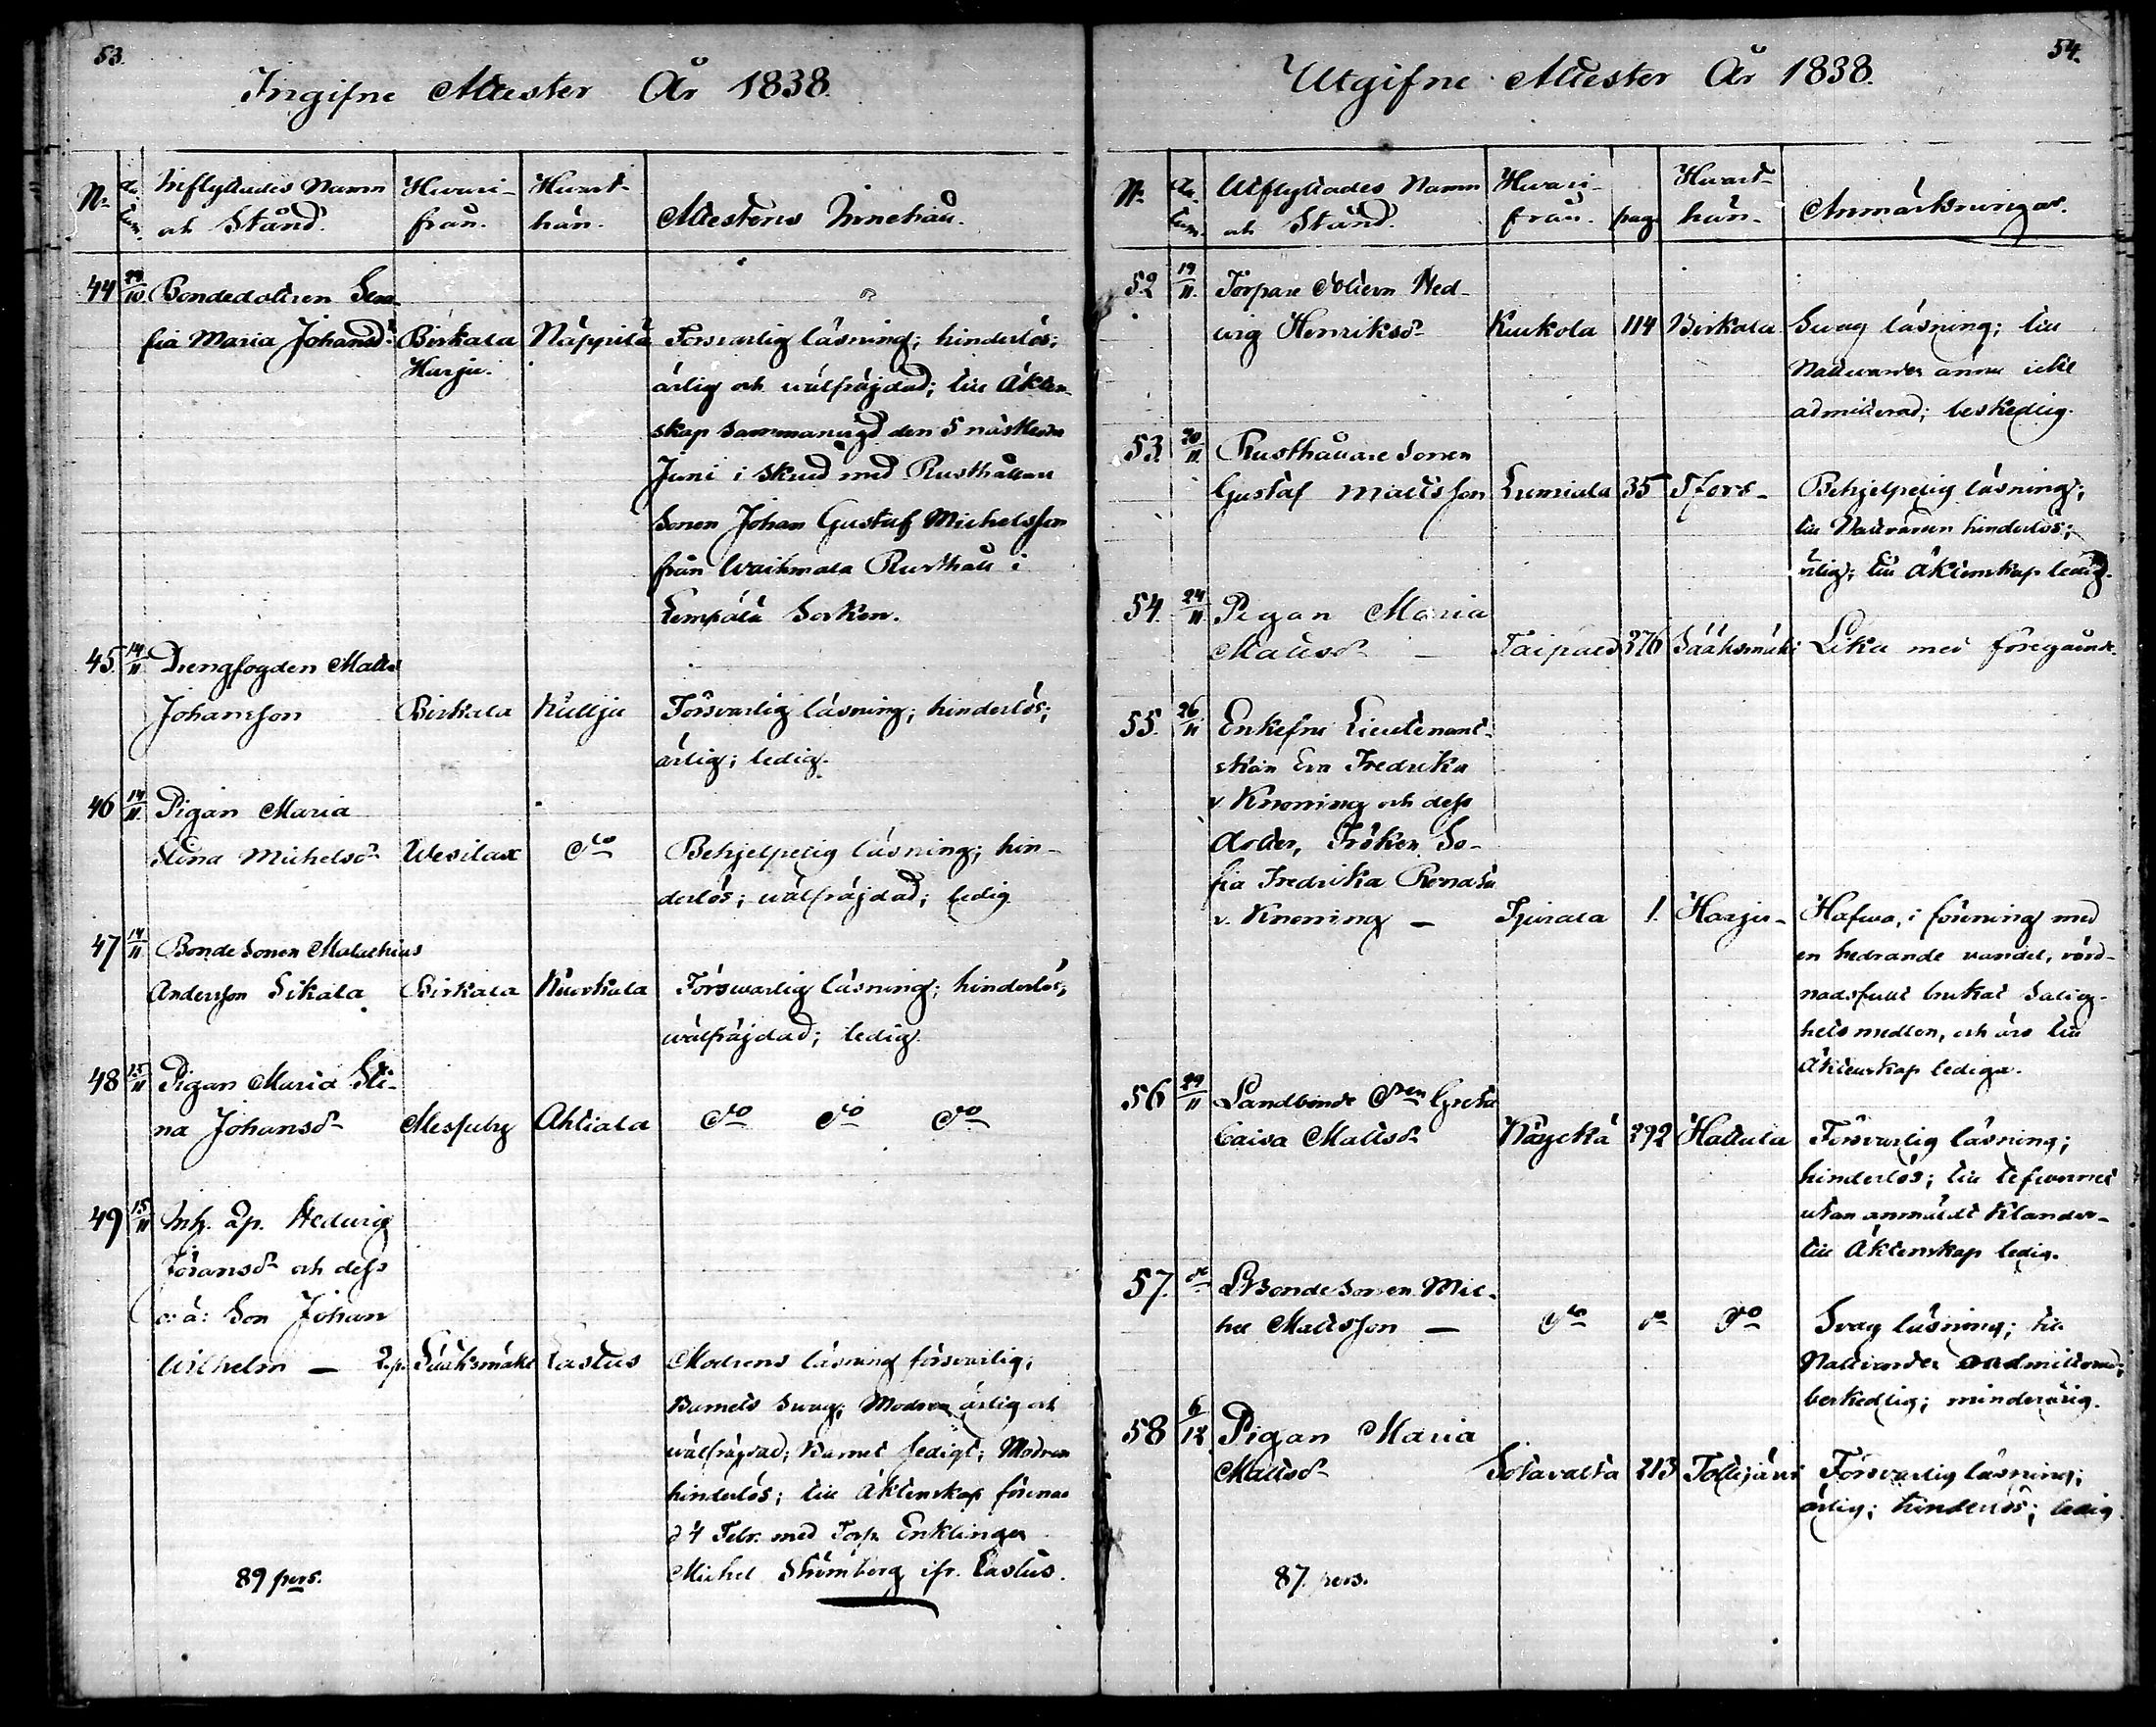 53.
Ingifne Attester År 1838.
N:o Datum. Inflyttades Namn och Stånd. Hvarifrån. Hvarthän. Attestens Innehåll.
44 29/10 Bondedottren Sera-
fia Maria Johansd:r Birkala Näppilä Försvarlig läsning; hinderlös;
Harju. ärlig och wälfräjdad; till Äkten-
skap sammanvigd den 5 nästledne
Juni i Skrud med Rusthållare
Sonen Johan Gustaf Michelsson
från Waihmala Rusthåll i
Lempälä Socken.
45. 14/11 Drengfogden Matts
Johansson Birkala Kulju Försvarlig läsning; hinderlös;
ärlig; ledig.
46 14/11 Pigan Maria
Stina Michelsd:r Wesilax d:o Behjelpelig läsning; hin-
derlös; wälfräjdad; ledig
47 14/11 Bonde Sonen Malachias
Andersson Sikala Birkala Kuorkala Försvarlig läsning; hinderlös,
wälfräjdad; ledig.
48 15/11 Pigan Maria Sti-
na Johansd:r Messuby Ahtiala d:o d:o d:o
49 15/11 Inh. äp. Hedvig
Göransd:r och dess
o: ä: Son Johan
Wilhelm — 2.p. Sääksmäki Lastus Modrens läsning försvarlig;
Barnets Svag; Modren ärlig och
wälfräjdad; Barnet sedigt; Modren
hinderlös; till Äktenskap förenas
d 4 Febr. med Torp. Enklingen
Michel Strömberg ifr. Lastus.
89 pers.
54.
Utgifne Attester År 1838.
N:o Datum. Utflyttades Namn och Stånd. Hvarifrån. pag Hvarthän. Anmärkningar.
52 19/11. Torpare dottern Hed-
wig Henriksd:r Kukola 114 Birkala Svag läsning; till
Nattvarden ännu icke
admitterad; beskedlig.
53. 20/11. Rusthållare Sonen
Gustaf Mattsson Lumiala 35 Tfors- Behjelpelig läsning;
till Nattvarden hinderlös;
ärlig; till Äktenskap ledig.
54. 24/11 Pigan Maria
Mattsd:r — Taipale 276 Sääksmäki Lika med föregående.
55. 26/11 Enkefru Lieutenant-
skan Eva Fredrika
v. Knorring och dess
dotter, Fröken So-
fia Fredrika Renata
v. Knorring — Tjurala 1. Harju- Hafwa, i förening med
en hedrande vandel, vörd-
nadsfullt brukat Salig-
hetsmedlen, och äro till
Äktenskap lediga.
56 29/11 Landbonde d:ren Greta
Caisa Mattsd:r Näyckä 292 Hattula Försvarlig läsning;
hinderlös; till lefvernet
utan anmäldt Klander-
till Äktenskap ledig.
57. d:o LBonde Sonen Mic-
hel Mattsson — d:o d:o d:o Svag läsning; till
Nattvarden oadmitterad;
beskedlig; minderårig.
58 6/12 Pigan Maria
Mattsd:r Sotavalta 213 Tottijärvi Försvarlig läsning;
ärlig; hinderlös; ledig.
87. pers.